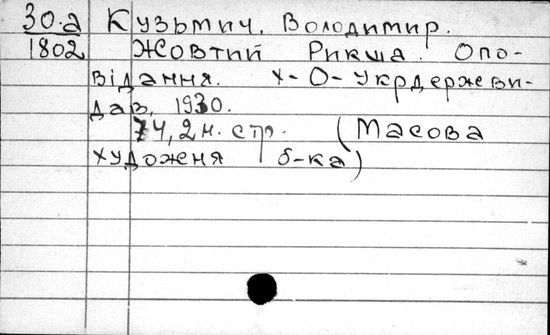 30.а Кузьмич, Володимир.
1802 Жовтий Рикша. Опо-
відання. Х-О-Укрдержеви-
дав, 1930.
74, 2 н. стр. (Масова
художеня б-ка)